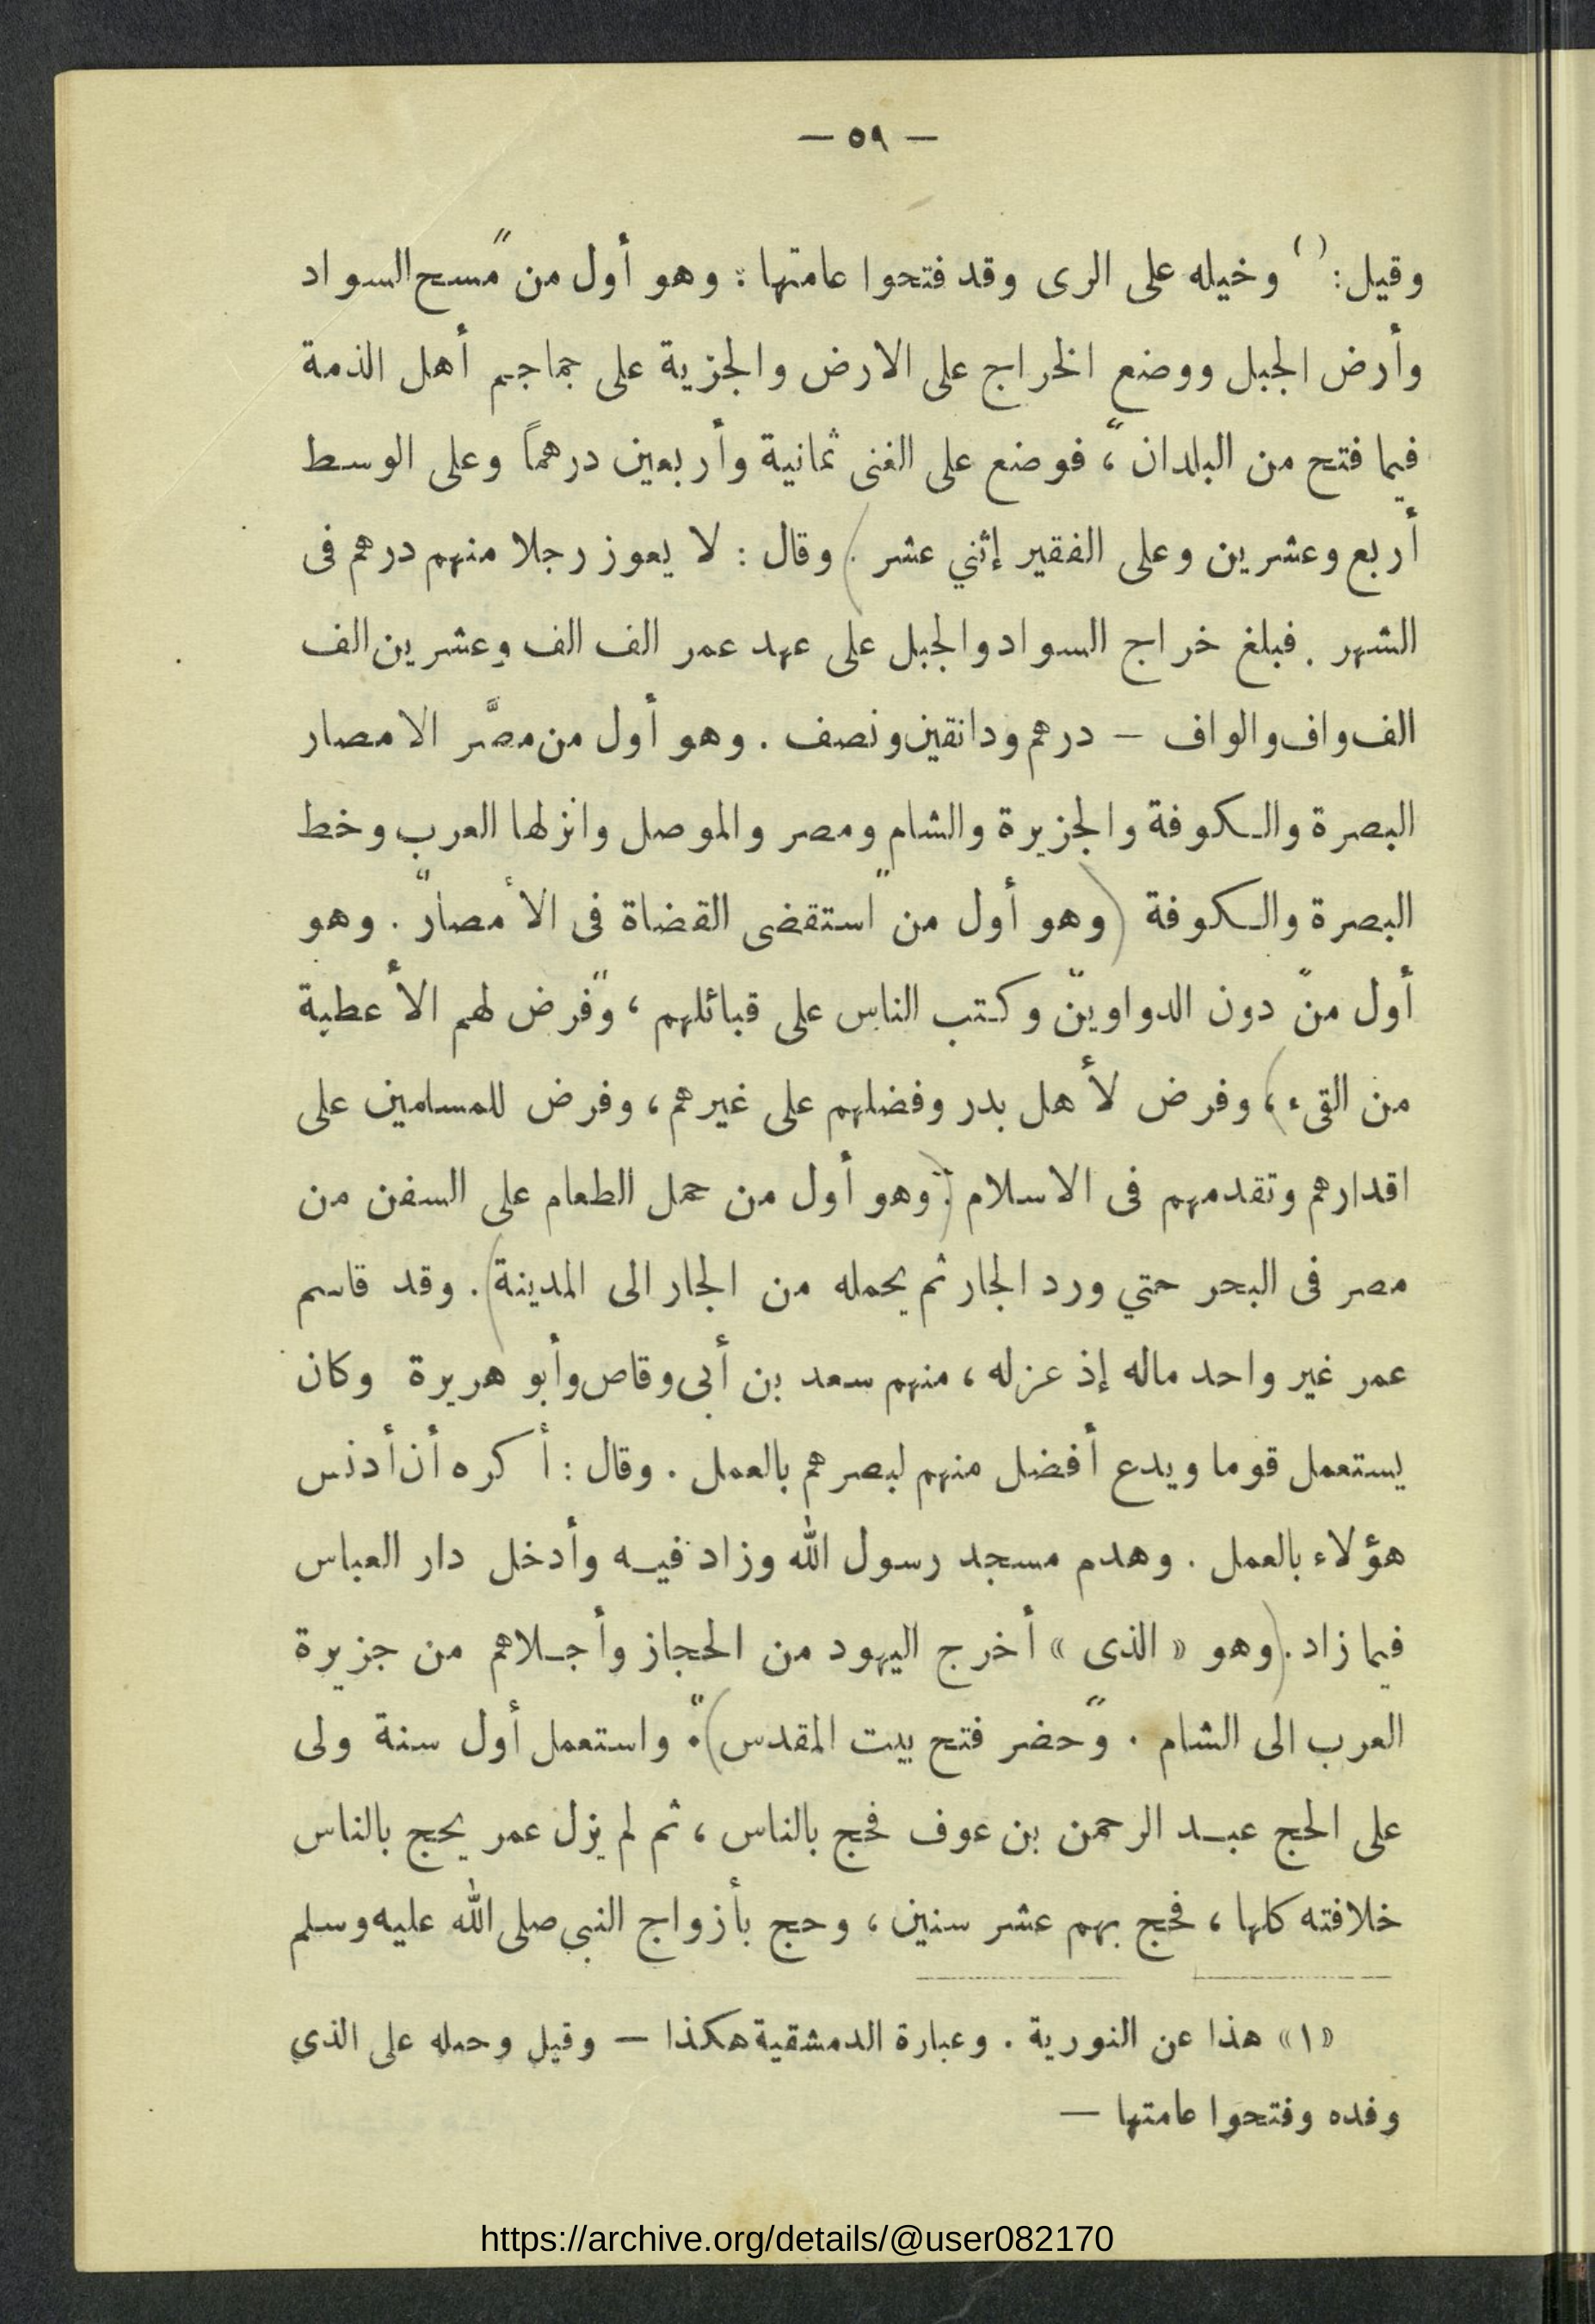 — ٥٩ —
وقيل: () وخيله على الرى وقد فتحوا عامتها : وهو أول من " مسح السواد
وأرض الجبل ووضع الخراج على الارض والجزية على جماجم أهل الذمة
فيما فتح من البلدان " ، فوضع على الغنى ثمانية وأربعين درهماً وعلى الوسط
أربع وعشرين وعلى الفقير إثني عشر . ) وقال : لا يعوز رجلا منهم درهم فى
الشهر . فبلغ خراج السواد والجبل على عهد عمر الف الف وعشرين الف
الف واف والواف — درهم ودانقين ونصف . وهو أول من مصَّر الامصار
البصرة والكوفة والجزيرة والشام ومصر والموصل وانزلها العرب وخط
البصرة والكوفة ( وهو أول من " استقضى القضاة فى الأمصار " . وهو
أول من " دون الدواوين " وكتب الناس على قبائلهم ، " وفرض لهم الأعطية
من القىء ) ، وفرض لأهل بدر وفضلهم على غيرهم ، وفرض للمسلمين على
اقدارهم وتقدمهم فى الاسلام . ( وهو أول من حمل الطعام على السفن من
مصر فى البحر حتي ورد الجار ثم يحمله من الجار الى المدينة ) . وقد قاسم
عمر غير واحد ماله إذ عزله ، منهم سعد بن أبى وقاص وأبو هريرة وكان
يستعمل قوما ويدع أفضل منهم لبصرهم بالعمل . وقال : أكره أن أدنس
هؤلاء بالعمل . وهدم مسجد رسول الله وزاد فيه وأدخل دار العباس
فيما زاد . ( وهو « الذى » أخرج اليهود من الحجاز وأجلاهم من جزيرة
العرب الى الشام . " وحضر فتح بيت المقدس ) " . واستعمل أول سنة ولى
على الحج عبد الرحمن بن عوف فحج بالناس ، ثم لم يزل عمر يحج بالناس
خلافته كلها ، فحج بهم عشر سنين ، وحج بأزواج النبي صلى الله عليه وسلم
«١» هذا عن النورية . وعبارة الدمشقية هكذا — وقيل وحمله على الذي
وفده وفتحوا عامتها —
https://archive.org/details/@user082170